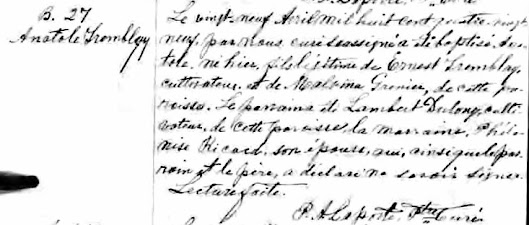 B. 27
Anatole Tremblay
Le vingt-neuf Avril mil huit cent quatre-vingt
neuf, par nous curé soussigné a été baptisé, Ana-
tole, né hier, fils légitime de Ernest Tremblay,
cultivateur, et de Malvina Grenier, de cette pa-
roisse. Le parrain a été Lambert Dulong, culti-
vateur, de cette paroisse, la marraine, Philo-
mise Ricard, son épouse, qui, ainsi que le par-
rain et le père, a déclaré ne savoir signer.
Lecture faite.
P. A. Laporte, Ptre Curé